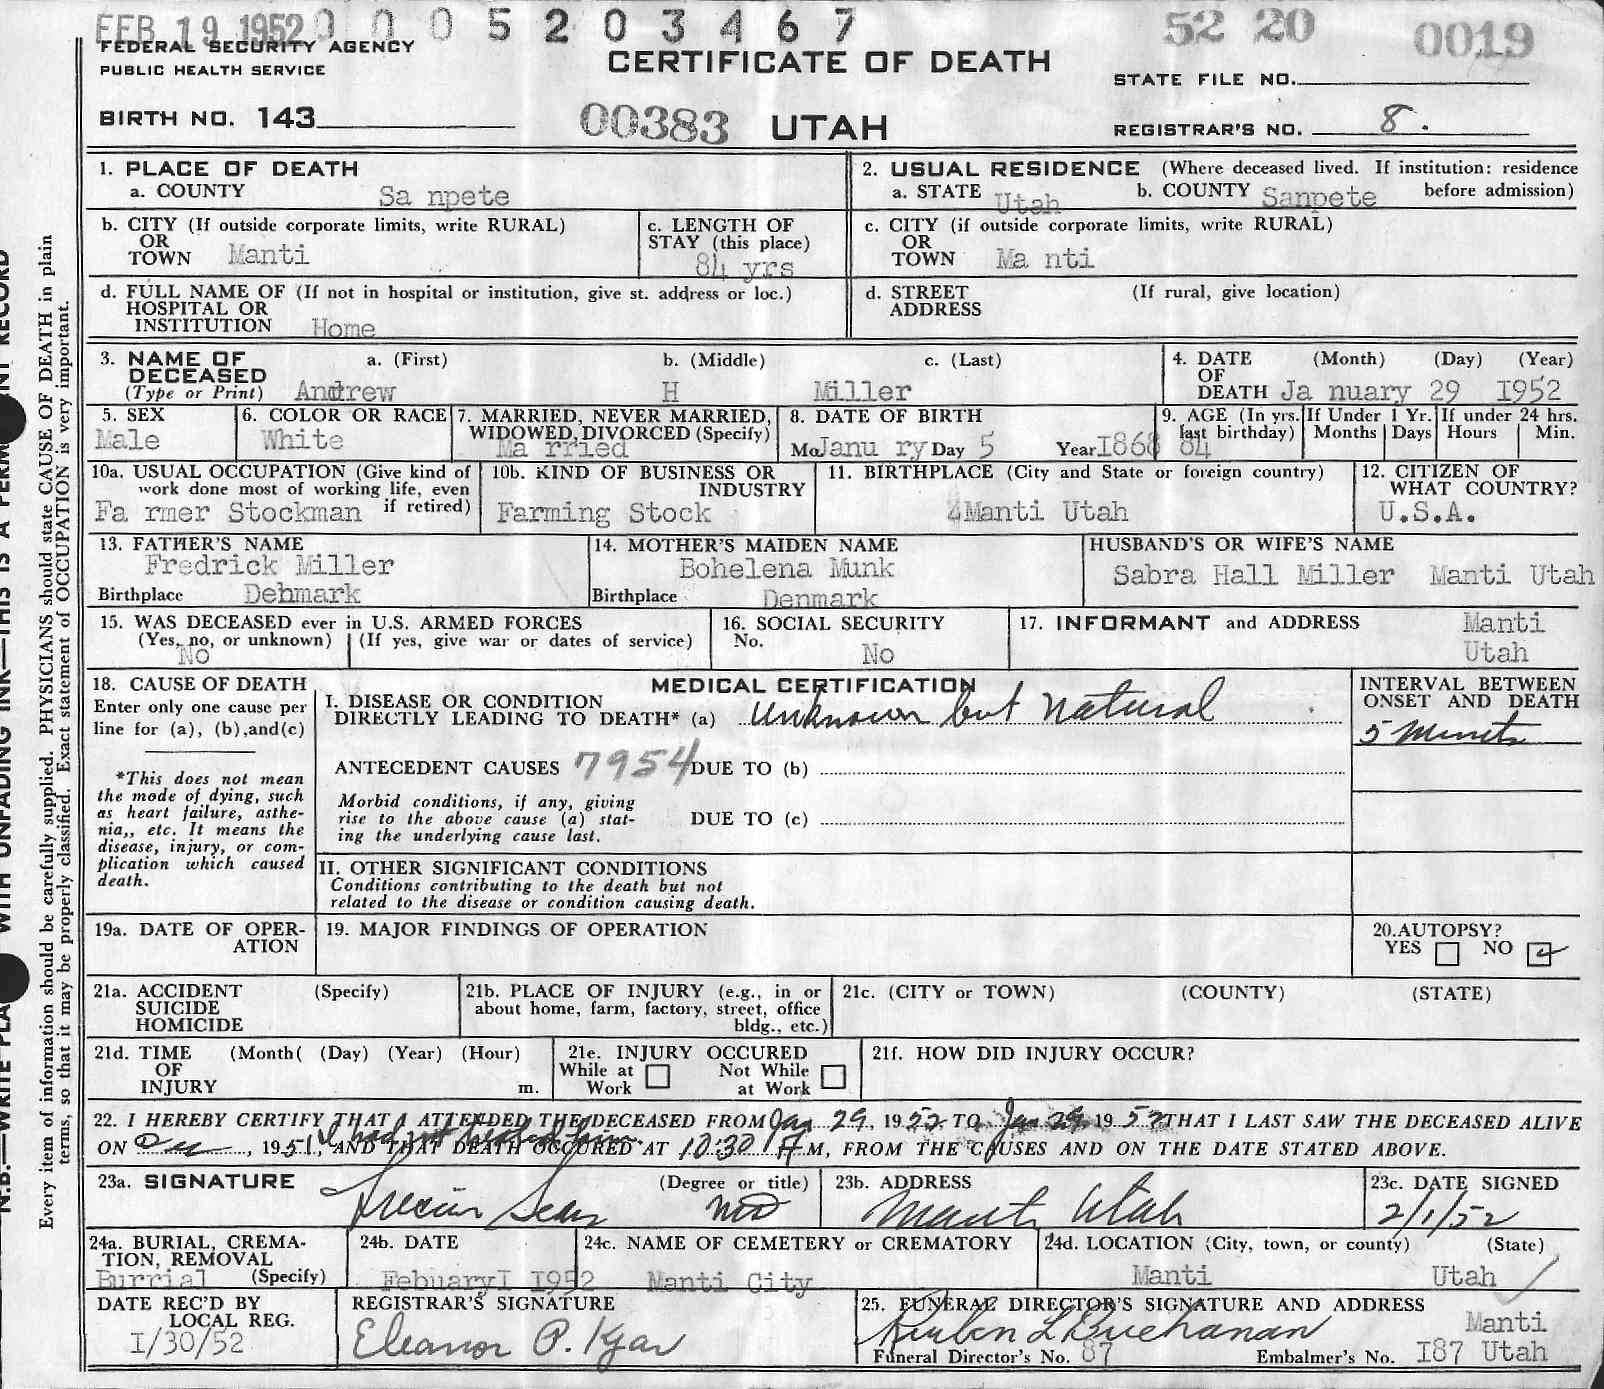 FEB 19 1952 0 0 0 5 2 0 3 4 6 7 52 20 0019
FEDERAL SECURITY AGENCY
PUBLIC HEALTH SERVICE
CERTIFICATE OF DEATH
STATE FILE NO.
BIRTH NO. 143 00383 UTAH
REGISTRAR'S NO. 8.
1. PLACE OF DEATH
a. COUNTY Sa npete
2. USUAL RESIDENCE (Where deceased lived. If institution: residence before admission)
a. STATE Utah b. COUNTY Sanpete
b. CITY (If outside corporate limits, write RURAL)
OR
TOWN Manti
c. LENGTH OF
STAY (this place)
84 yrs
c. CITY (if outside corporate limits, write RURAL)
OR
TOWN Ma nti
d. FULL NAME OF (If not in hospital or institution, give st. address or loc.)
HOSPITAL OR
INSTITUTION Home
d. STREET (If rural, give location)
ADDRESS
3. NAME OF a. (First) b. (Middle) c. (Last)
DECEASED
(Type or Print) Andrew H Miller
4. DATE (Month) (Day) (Year)
OF
DEATH Ja nuary 29 1952
5. SEX
Male
6. COLOR OR RACE
White
7. MARRIED, NEVER MARRIED,
WIDOWED, DIVORCED (Specify)
Ma rried
8. DATE OF BIRTH
Mo Janu ry Day 5 Year I868
9. AGE (In yrs. last birthday) 84
If Under 1 Yr.
Months Days
If under 24 hrs.
Hours Min.
10a. USUAL OCCUPATION (Give kind of
work done most of working life, even
if retired)
Fa rmer Stockman
10b. KIND OF BUSINESS OR
INDUSTRY
Farming Stock
11. BIRTHPLACE (City and State or foreign country)
Manti Utah
12. CITIZEN OF
WHAT COUNTRY?
U.S.A.
13. FATHER'S NAME
Fredrick Miller
Birthplace Dehmark
14. MOTHER'S MAIDEN NAME
Bohelena Munk
Birthplace Denmark
HUSBAND'S OR WIFE'S NAME
Sabra Hall Miller Manti Utah
15. WAS DECEASED ever in U.S. ARMED FORCES
(Yes, no, or unknown) (If yes, give war or dates of service)
No
16. SOCIAL SECURITY
No.
No
17. INFORMANT and ADDRESS Manti
Utah
18. CAUSE OF DEATH
Enter only one cause per
line for (a), (b), and (c)
*This does not mean
the mode of dying, such
as heart failure, asthe-
nia,, etc. It means the
disease, injury, or com-
plication which caused
death.
MEDICAL CERTIFICATION
I. DISEASE OR CONDITION
DIRECTLY LEADING TO DEATH* (a) Unknown but Natural
ANTECEDENT CAUSES 7954 DUE TO (b)
Morbid conditions, if any, giving
rise to the above cause (a) stat-
ing the underlying cause last.
DUE TO (c)
II. OTHER SIGNIFICANT CONDITIONS
Conditions contributing to the death but not
related to the disease or condition causing death.
INTERVAL BETWEEN
ONSET AND DEATH
5 Minuts
19a. DATE OF OPER-
ATION
19. MAJOR FINDINGS OF OPERATION
20. AUTOPSY?
YES NO
21a. ACCIDENT (Specify)
SUICIDE
HOMICIDE
21b. PLACE OF INJURY (e.g., in or
about home, farm, factory, street, office
bldg., etc.)
21c. (CITY or TOWN) (COUNTY) (STATE)
21d. TIME (Month( (Day) (Year) (Hour)
OF
INJURY m.
21e. INJURY OCCURED
While at Not While
Work at Work
21f. HOW DID INJURY OCCUR?
22. I HEREBY CERTIFY THAT I ATTENDED THE DECEASED FROM Jan 29, 1952 TO Jan 29, 1952 THAT I LAST SAW THE DECEASED ALIVE
I had not treated
ON Dec, 1951, AND THAT DEATH OCCURED AT 10:30 A M, FROM THE CAUSES AND ON THE DATE STATED ABOVE.
23a. SIGNATURE (Degree or title)
Sears MD
23b. ADDRESS
Manti Utah
23c. DATE SIGNED
2/1/52
24a. BURIAL, CREMA-
TION, REMOVAL
(Specify)
Burrial
24b. DATE
FebuaryI 1952
24c. NAME OF CEMETERY or CREMATORY
Manti City
24d. LOCATION (City, town, or county) (State)
Manti Utah
DATE REC'D BY
LOCAL REG.
I/30/52
REGISTRAR'S SIGNATURE
Eleanor P.
25. FUNERAL DIRECTOR'S SIGNATURE AND ADDRESS
Reuben L Buchanan Manti
Funeral Director's No. 87 Embalmer's No. I87 Utah
Every item of information should be carefully supplied. PHYSICIANS should state CAUSE OF DEATH in plain
terms, so that it may be properly classified. Exact statement of OCCUPATION is very important.